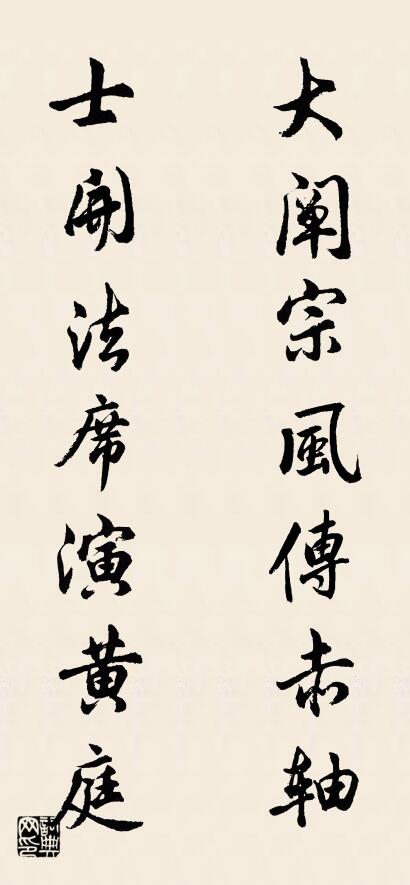 大阐宗風傳赤軸
士開法席演黄庭